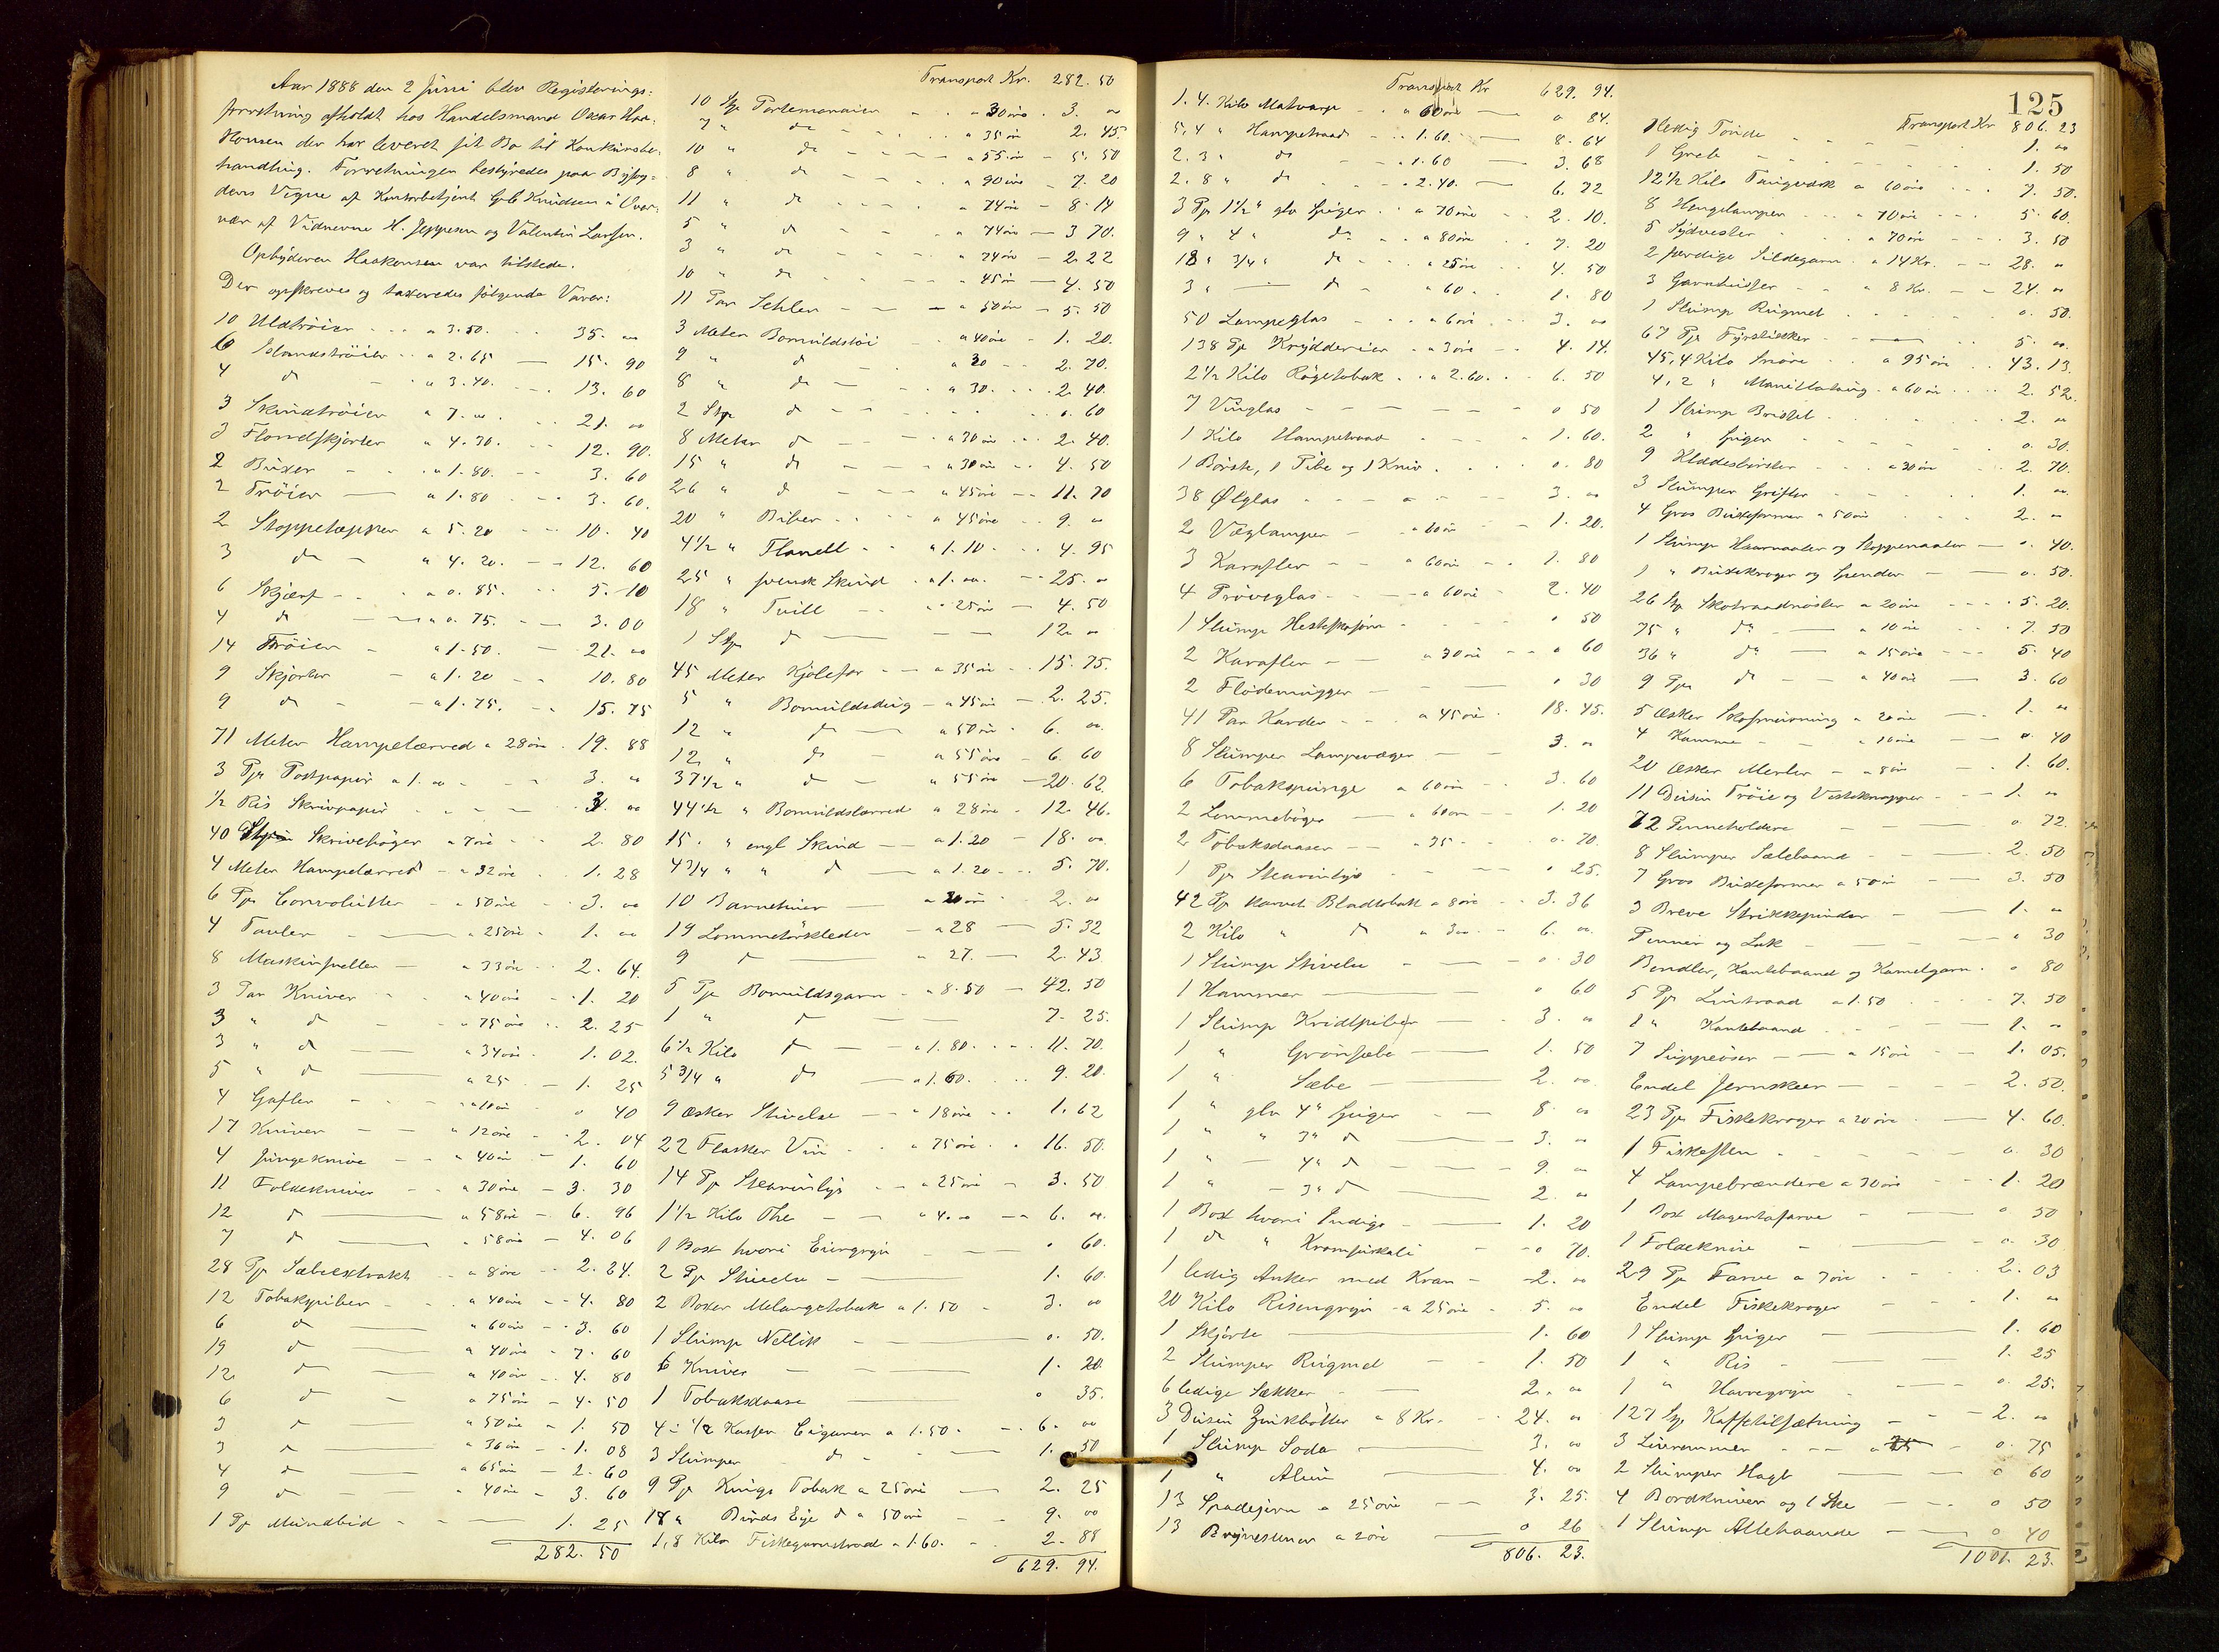 Aar 1888 den 2 Juni blev Registerings-
forretning afholdt hos Handelsmand Oscar Haa-
konsen der har leveret sit Bo til Konkursbe-
handling. Forretningen bestyredes paa Byfog-
dens Vegne af Kontorbetjent Knudsen i Over-
vær af Vidnerne H. Jeppesen og Valentin Larsen.
Opbyderen Haakonsen var tilstede.
Der opskreves og taxeredes følgende Varer:
10 Uldtrøier a 3.50. 35. "
6 Islandstrøier a 2.65 15. 90
4 do a 3.40. 13. 60
3 Skindtrøier a 7. " 21. "
3 Flonelskjorter a 4.30. 12. 90.
2 Buxer a 1.80. 3. 60
2 Trøier a 1.80 3. 60.
2 Stoppetæpper a 5.20 10. 40
3 do a 4.20. 12. 60
6 Skjærf a 0.85. 5. 10
4 do a 0.75. 3. 00
14 Trøier a 1.50. 21. "
9 Skjorter a 1.20 10. 80
9 do a 1.75. 15. 75
71 Meter Hampelærred a 28 øre 19. 88
3 Pr Postpapir a 1. " 3. "
1/2 Ris Skrivpapir 3. "
40 Skrivebøger a 7 øre 2. 80
4 Meter Hampelærred a 32 øre 1. 28
6 Pr Convolutter a 50 øre 3. "
4 Tavler a 25 øre 1. "
8 Maskin a 33 øre 2. 64.
3 Par Kniver a 40 øre 1. 20
3 " do a 75 øre 2. 25
3 " do a 34 øre 1. 02.
5 " do a 25 1. 25
4 Gafler a 10 øre 0 40
17 Kniver a 12 øre 2. 04
4 Jungeknive a 40 øre 1. 60
11 Foldekniver a 30 øre 3. 30
12 do a 58 øre 6. 96
7 do a 58 øre 4. 06
28 Pr Sæbeextrakt a 8 øre 2. 24.
12 Tobakspiber a 40 øre 4. 80
6 do a 60 øre 3. 60
19 do a 40 øre 7. 60
12 do a 40 øre 4. 80
6 do a 75 øre 4. 50
3 do a 50 øre 1. 50
3 do a 36 øre 1. 08
4 do a 65 øre 2. 60
9 do a 40 øre 3. 60
1 Pr Mundbid 1. 25
282. 50
Transport Kr. 282. 50
10 Stp Portemonaier a 30 øre 3. "
7 " do a 35 øre 2. 45.
10 " do a 55 øre 5. 50
8 " do a 90 øre 7. 20
11 " do a 74 øre 8. 14
5 " do a 74 øre 3 70.
3 " do a 74 øre 2. 22
10 " do a 45 øre 4. 50
11 Par Sehler a 50 øre 5. 50
3 Meter Bomuldstøi a 40 øre 1. 20.
9 " do a 30 2. 70.
8 " do a 30. 2. 40.
2 Stp do 0. 60
8 Meter do a 30 øre 2. 40.
15 " do a 30 øre 4. 50
26 " do a 45 øre 11. 70
20 " Biber a 45 øre 9. "
4 1/2 " Flanell a 1.10 4. 95
25 " svensk Skind a 1. " 25. "
18 " Tvill a 25 øre 4. 50
1 Stp do 12 "
45 Meter Kjolefor a 35 øre 15. 75.
5 " Bomuldsdug a 45 øre 2. 25.
12 " do a 50 øre 6. "
12 " do a 55 øre 6. 60
37 1/2 " do a 55 øre 20. 62.
44 1/2 " Bomuldslærred a 28 øre 12. 46.
15. " engl Skind a 1.20 18. "
4 3/4 " " do a 1.20 5. 70.
10 Barnehuer a 20 øre 2. "
19 Lommetørkleder a 28 5. 32
9 do a 27. 2. 43
5 Pr Bomuldsgarn a 8.50 42. 50
1 " do 7. 25.
6 1/2 Kilo do a 1.80. 11. 70.
5 3/4 " do a 1.60. 9. 20.
9 Æsker Stivelse a 18 øre 1. 62
22 Flasker Vin a 75 øre 16. 50.
14 Pr Stearinlys a 25 øre 3. 50
1 1/2 Kilo The a 4. " 6. "
1 Box hvori 0 60.
2 Pr Stivelse 1. 60.
2 Boxer Melangetobak a 1.50 3. "
1 Slump Nellik 0. 50.
6 Knives 1. 20
1 Tobaksdaase 0 35.
4 - 1/2 Kasser Cigarer a 1.50 6. "
3 Slumper do 1. 50
9 Pr Kings Tobak a 25 øre 2. 25
18 " Birds Eye do a 50 øre 9. "
1,8 Kilo Fiskegarnstraad a 1.60. 2. 88
629. 94.
Transport Kr 629. 94.
1.4. Kilo Matvarp a 60 øre 0 84.
5,4 " Hampetraad 1.60. 8. 64
2.3 " do a 1.60 3. 68
2.8 " do 2.40. 6. 72
3 Pr 1 1/2" glv Spiger a 70 øre 2. 10.
9 " 4 " do a 80 øre 7. 20
18 " 3/4 " do a 25 øre 4. 50
3 " do a 60 1. 80
50 Lampeglas a 6 øre 3. "
138 Pr Krydderier a 3 øre 4. 14.
2 1/2 Kilo Røgetobak a 2.60. 6. 50
7 Vinglas 0 50
1 Kilo Hampetraad 1. 60.
1 Børste, 1 Pibe og 1 Kniv 0. 80
38 Ølglas 3. "
2 Væglamper a 60 øre 1. 20.
3 Karafler a 60 øre 1. 80
4 Prøveglas a 60 øre 2. 40
1 Slump Hesteskosøm 0 50
2 Karafler a 30 øre 0 60
2 Flødemugger 0 30
41 Par Karder a 45 øre 18. 45.
8 Slumper Lampevæger 3. "
6 Tobakspunge a 60 øre 3. 60
2 Lommebøger a 60 øre 1. 20
2 Tobaksdaaser a 35 0. 70.
1 Pr Stearinlys 0 25.
42 Pr karvet Bladtobak a 8 øre 3. 36
2 Kilo " do a 3 " 6. "
1 Slump Stivelse 0. 30
1 Hammer 0 60
1 Slump Kridtpiber 3. "
1 " Grønsæbe 1. 50
1 " Sæbe 2. "
1 " glv 4" Spiger 8 "
1 " " 3" do 3. "
1 " 4" do 9. "
1 " 3" do 2. "
1 Box hvori Indigo 1. 20
1 do " Kromsurkali 0 70.
1 ledig Anker med Kran 2. "
20 Kilo Risengryn a 25 øre 5. "
1 Skjorte 1. 60
2 Slumper Rugmel 1. 50
6 ledige Sækker 2. "
3 Dusin Zinkbøtter a 8 Kr. 24. "
1 Slump Soda 3. "
1 " Alun 4. "
13 Spadejern a 25 øre 3. 25.
13 Brynestener a 2 øre 0 26
806. 23.
125
Transport Kr 806. 23
1 ledig Tønde 1. "
1 Greb 1. 50
12 1/2 Kilo Tangvask a 60 øre 7. 50.
8 Hengelamper a 70 øre 5. 60.
5 Sydvester a 70 øre 3. 50
2 færdige Sildegarn a 14 Kr. 28. "
3 Garnhusser a 8 Kr. 24. "
1 Slump Rugmel 0. 50.
67 Pr Fyrstikker 5. "
45,4 Kilo Snøre a 95 øre 43. 13.
4,2 " Manillatoug a 60 øre 2. 52.
1 Slump Bristel 2. "
2 " Spiger 0. 30.
9 Klædesbørster a 30 øre 2. 70.
3 Slumper Grifler 1. "
4 Gros Buxeformer a 50 øre 2. "
1 Slump Haarnaaler og Stoppenaaler 0. 40.
1 " Buxekroger og Spender 0. 50.
26 Stp Skotraadnøster a 20 øre 5. 20.
75 " do a 10 øre 7. 50
36 " do a 15 øre 5. 40
9 Pr do a 40 øre 3. 60
5 Æsker Skosmurning a 20 øre 1. "
4 Kamme a 10 øre 0. 40
20 Æsker Merler a 8 øre 1. 60.
11 Dusin Trøie og Vesteknapper 1. "
72 Penneholdere 0. 72.
8 Slumper Sælebaand 2. 50
7 Gros Buxeformer a 50 øre 3. 50
3 Breve Strikkepinder 1. "
Penner og Lak 0 30
Bendler, Kantebaand og Kamelgarn 0 80
5 Pr Lintraad a 1.50 7. 50
1 " Kantebaand 1. "
7 Suppeøser a 15 øre 1. 05.
Endel Jernskeer 2. 50.
23 Pr Fiskekroger a 20 øre 4. 60.
1 0. 30
4 Lampebrændere a 30 øre 1. 20
1 Box Magentafarve 0 50
1 Foldekniv 0. 30
29 Pr Farve a 7 øre 2. 03
Endel Fiskekroger 1. "
1 Slump Spiger 1. 60
1 " Ris 1. 25
1 " Havregryn 0. 25.
127 Stp Kaffetilsætning 2. "
3 0. 75
2 Slumper Hagl 0 60
4 Bordkniver og 1 Ske 0 50
1 Slump Allehaande 0 40
1001. 23.